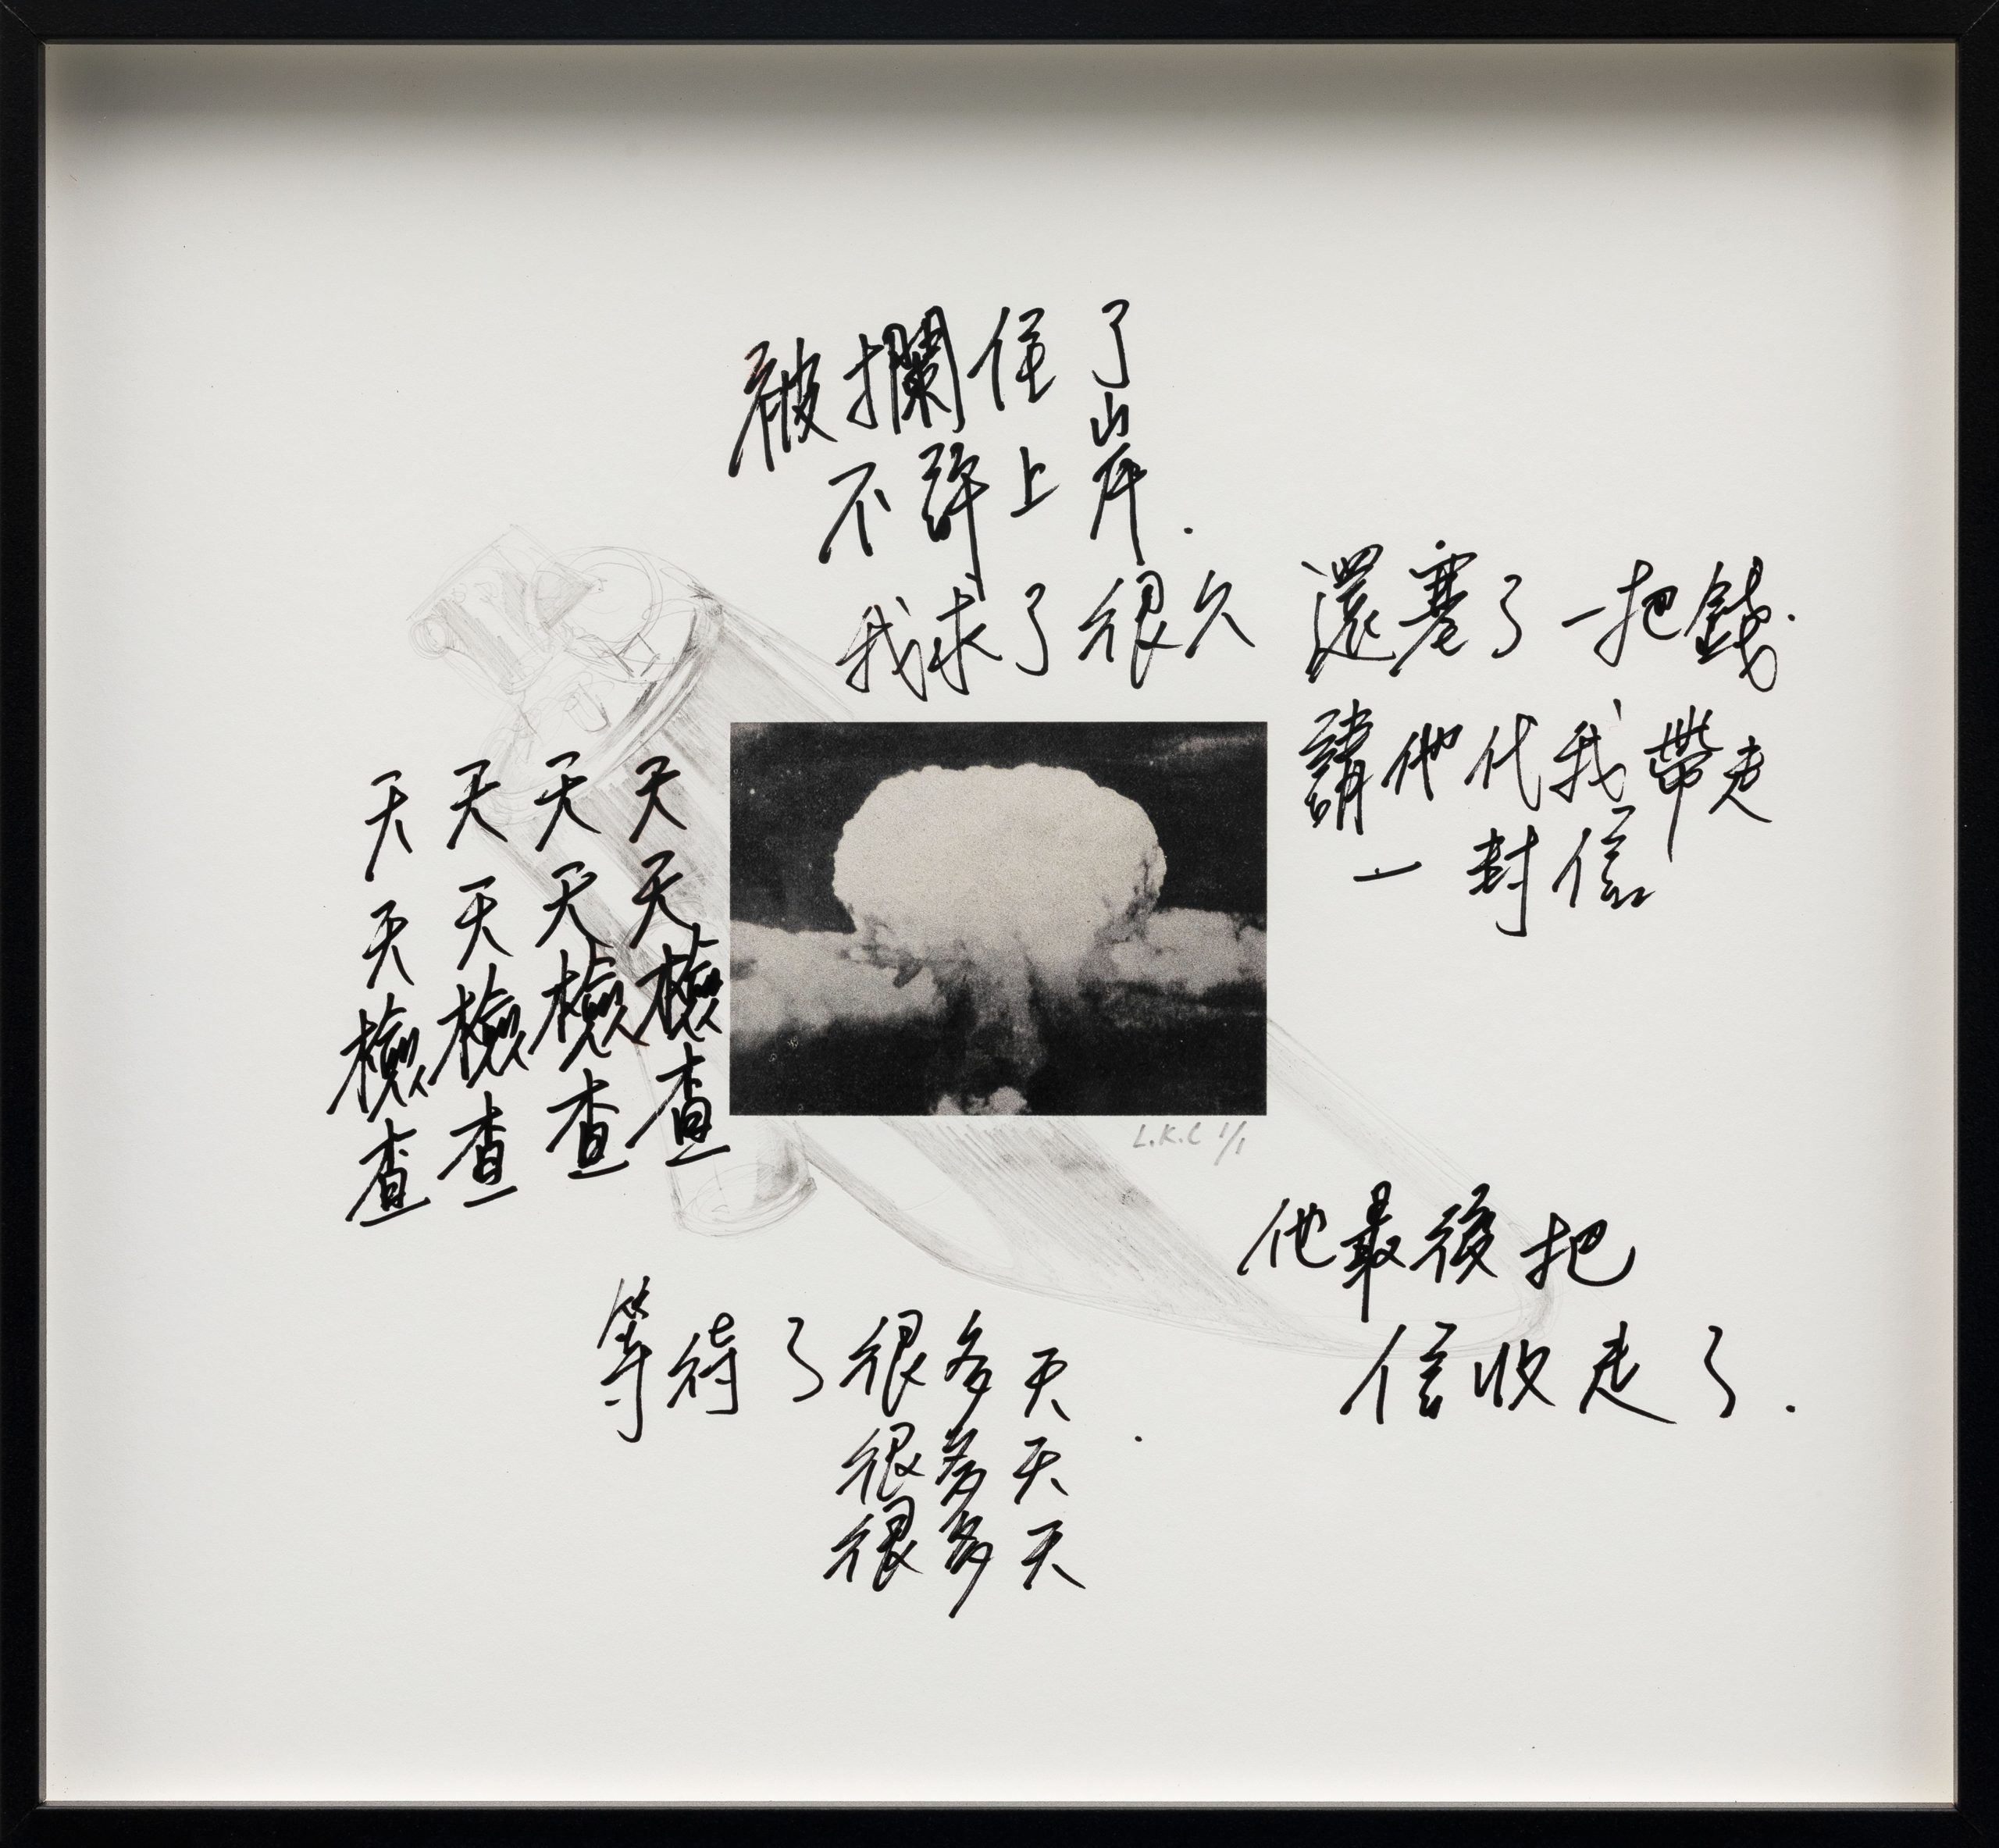 被攔住了
不許上岸.
我求了很久
還塞了一把錢.
請他代我帶走
一封信
他最後把
信收走了.
等待了很多天.
很多天
很多天
天天檢查
天天檢查
天天檢查
天天檢查
L.K.C 1/1